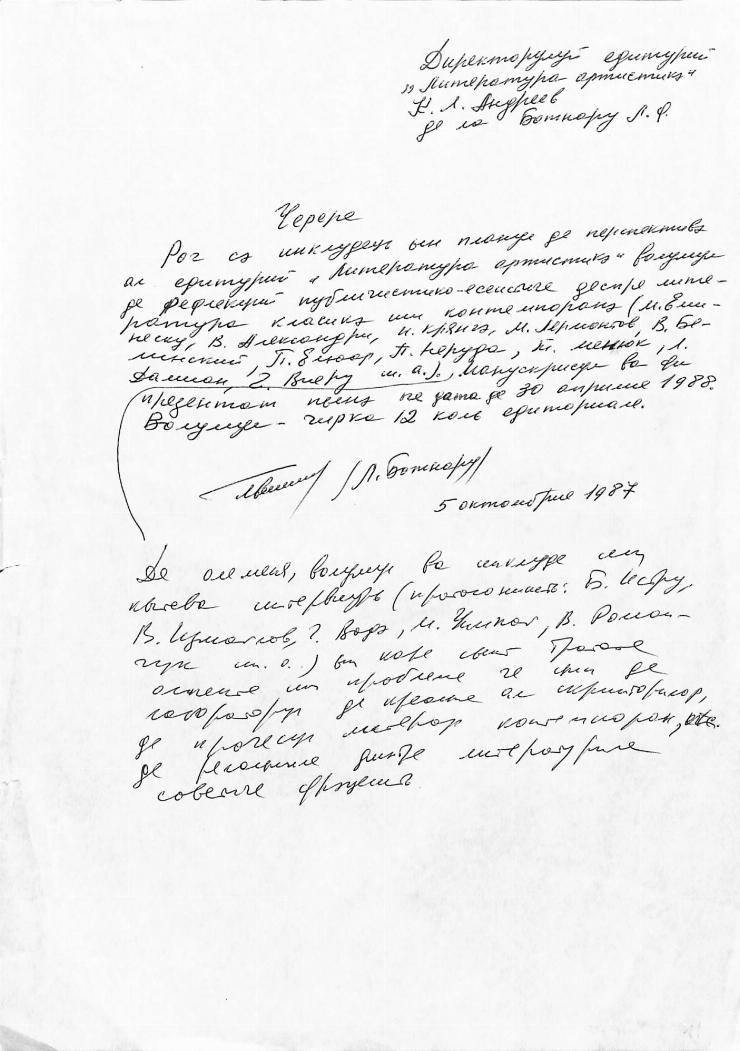 Директорулуй едитурий
„Литература артистикэ“
Н. Л. Андреев
де ла Ботнару Л. Ф.
Черере
Рог сэ инклудець ын планул де перспективэ
ал едитурий „Литература артистикэ“ волумул
де рефлекций публичистико-есеистиче деспре лите-
ратура класикэ ши контемпоранэ (М. Еми-
неску, В. Александри, И. Крянгэ, М. Лермонтов, В. Бе-
линский, П. Елюар, П. Неруда, Н. Менюк, Л.
Дамиан, Г. Виеру ш. а.). Манускрисул ва фи
презентат пынэ пе дата де 30 априлие 1988.
Волумул – чирка 12 коль едиториале.
/Л. Ботнару/
5 октомбрие 1987
Де асеменя, волумул ва инклуде ши
кытева интервиурь (протагоништь: Б. Истру,
В. Измайлов, Г. Водэ, М. Чимпой, В. Роман-
чук ш. а.) ын каре сынт тратате
аспекте ши проблеме че цин де
лабораторул де креацие ал скрииторилор,
де прочесул литерар контемпоран,
де релацииле динтре литературиле
советиче фрэцешть